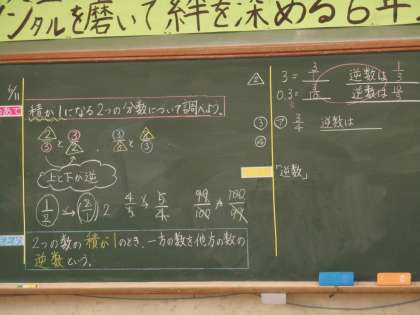 ンタルを磨いて絆を深める6年
6/11
めあて
積が1になる2つの分数について調べよう。
2/3 と 3/2 3/4 と 4/3
上と下が逆
1/2 2/1 2 4/5 と 5/4 99/100 と 100/99
2つの数の積が1のとき、一方の数を他方の数の
逆数という。
② 3 = 3/1 逆数は 1/3
0.3 = 3/10 逆数は 10/3
③ ㋐ 3/4 逆数は
④
「逆数」